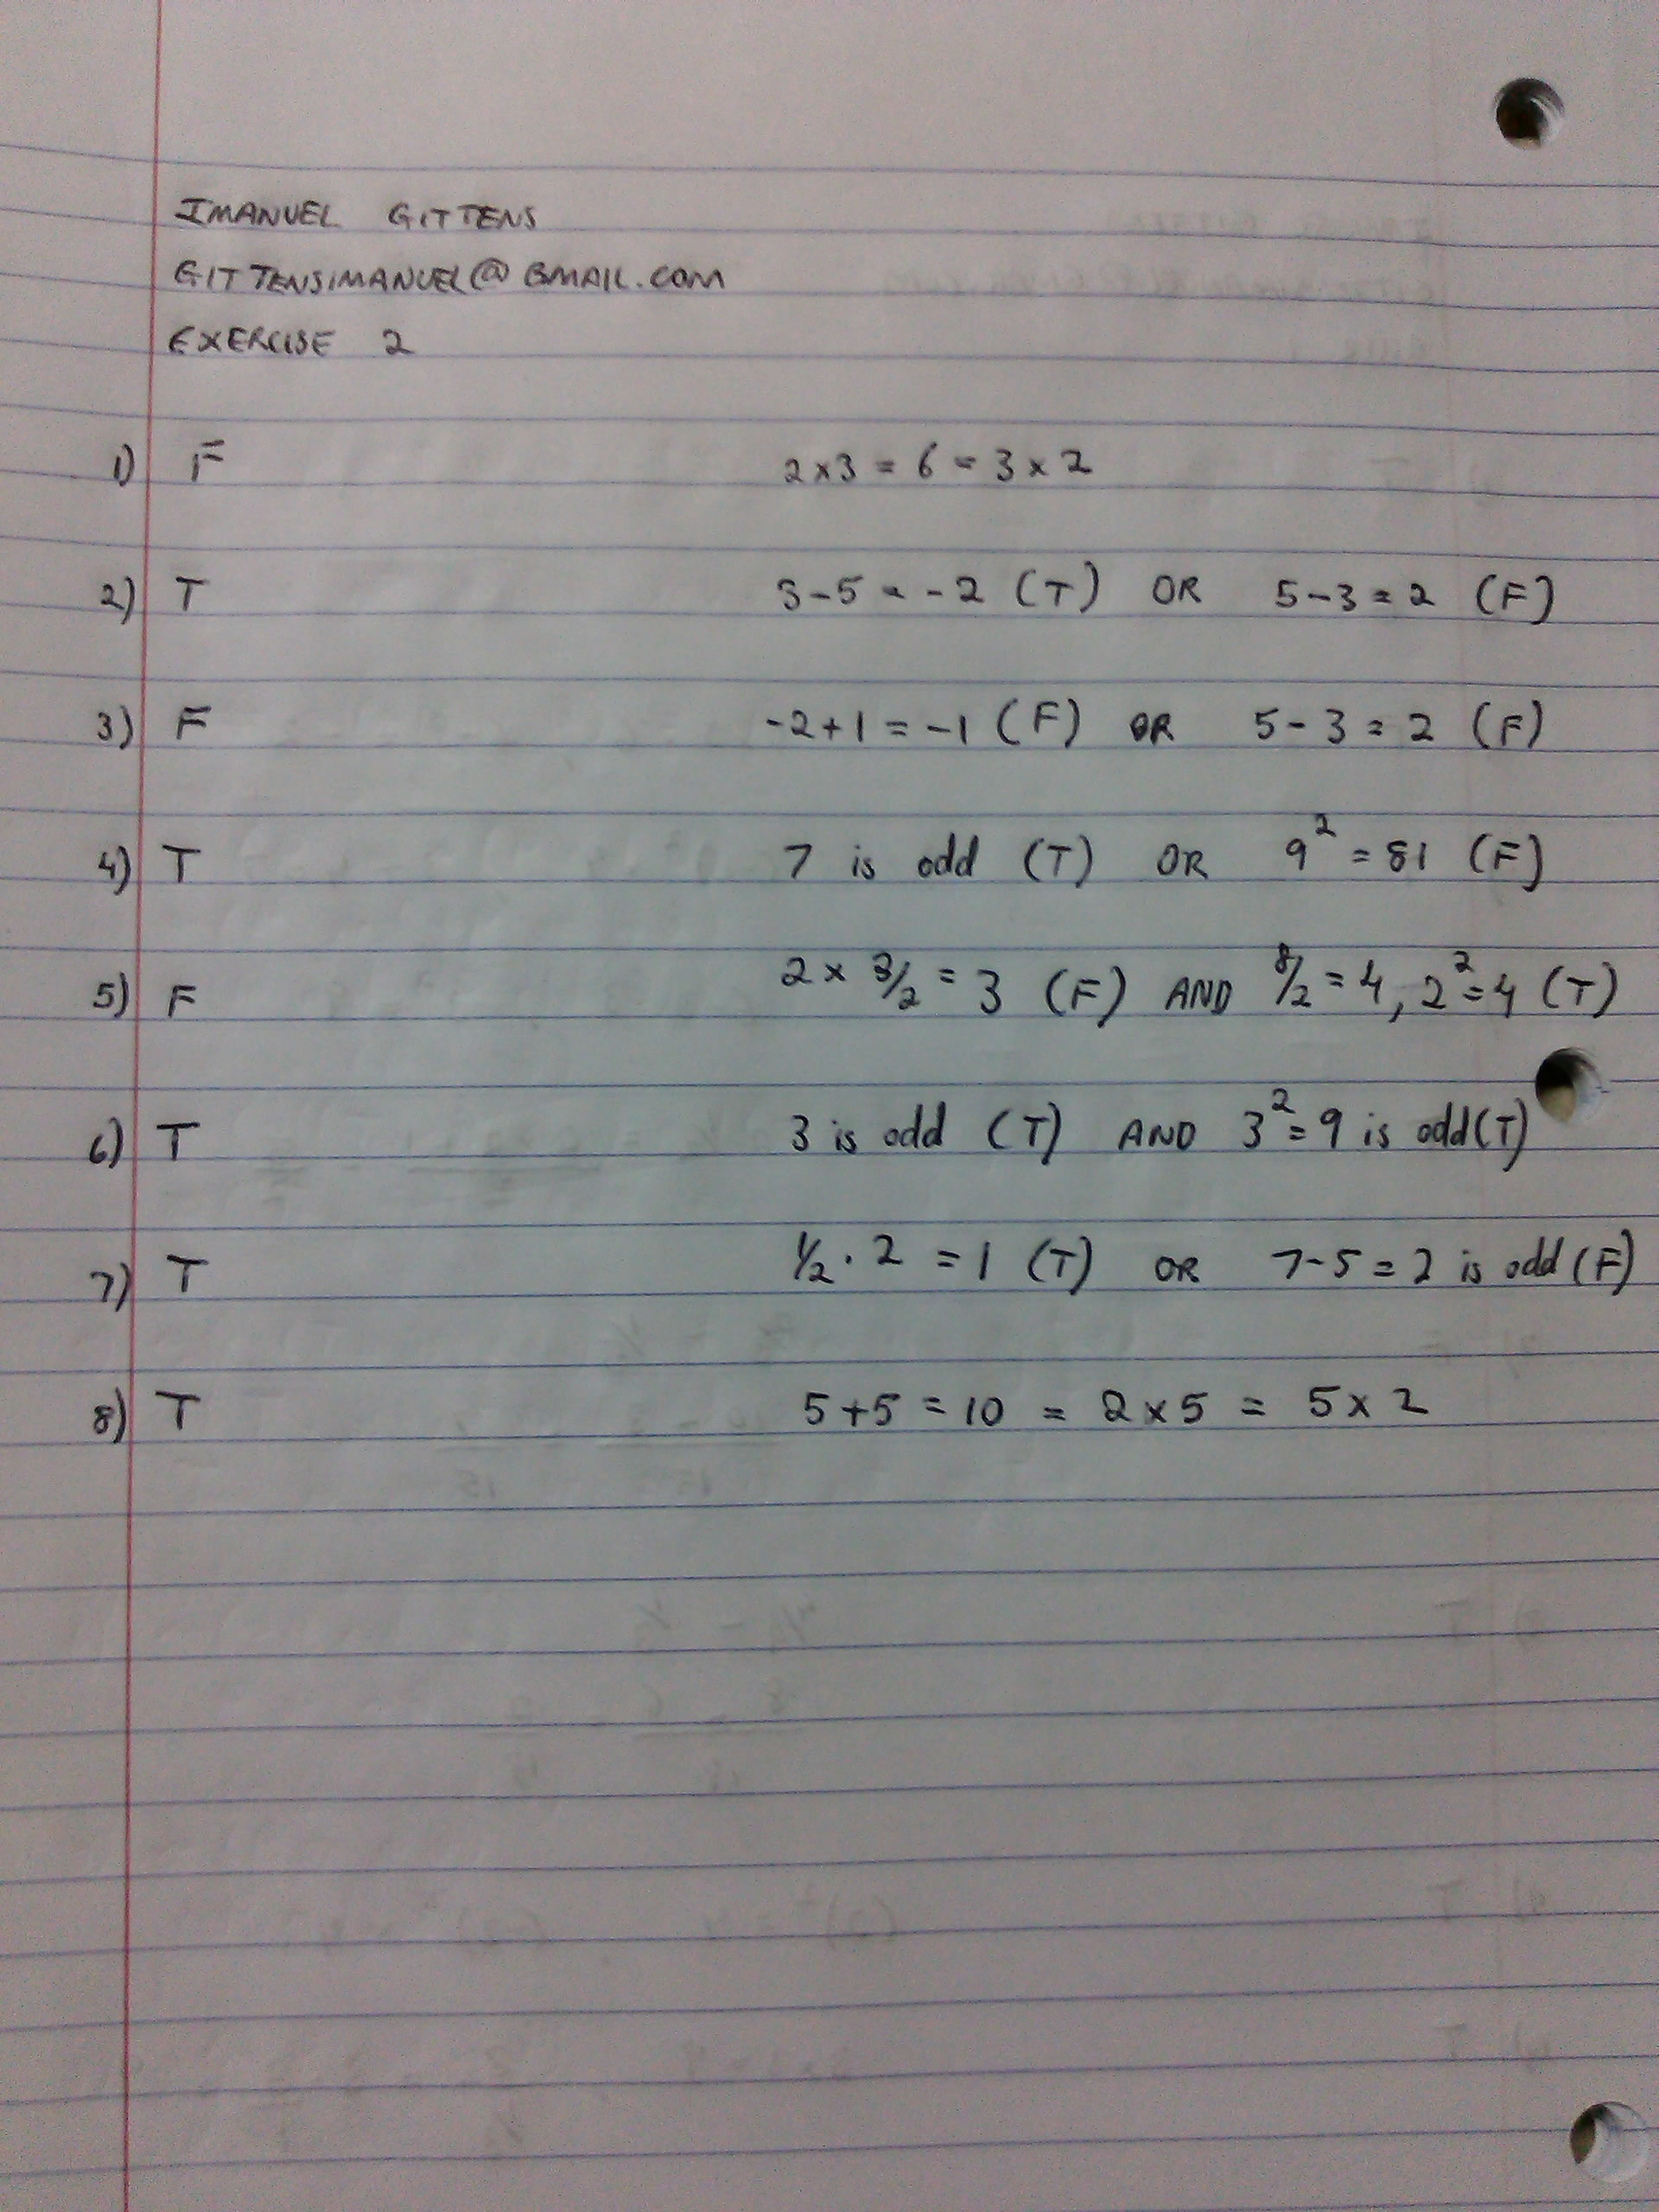 IMANUEL GITTENS
GITTENSIMANUEL@GMAIL.COM
EXERCISE 2
1) F 2×3 = 6 = 3×2
2) T 3-5 = -2 (T) OR 5-3 = 2 (F)
3) F -2+1 = -1 (F) OR 5-3 = 2 (F)
4) T 7 is odd (T) OR 9² = 81 (F)
5) F 2 × 3/2 = 3 (F) AND 8/2 = 4, 2² = 4 (T)
6) T 3 is odd (T) AND 3² = 9 is odd (T)
7) T 1/2 · 2 = 1 (T) OR 7-5 = 2 is odd (F)
8) T 5+5 = 10 = 2×5 = 5×2